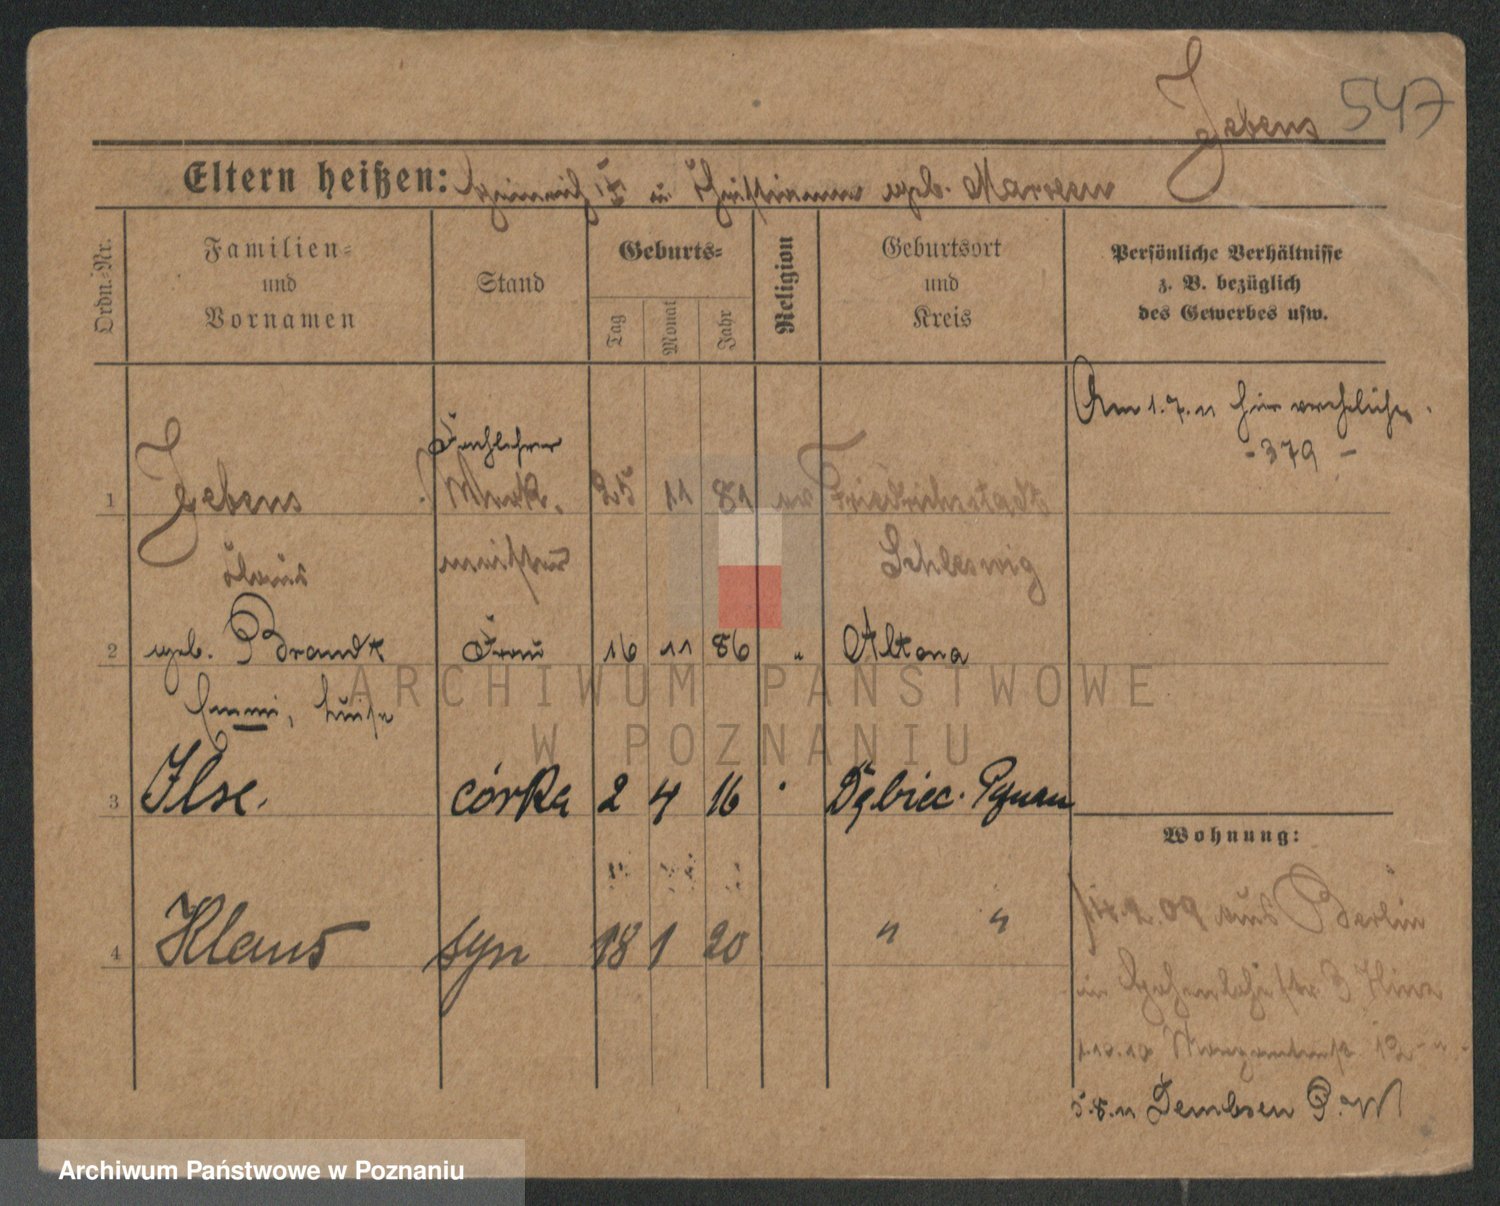 Jebens 547
Eltern heißen: Heinrich † u Christianne geb. Marxsen
Ordn.-Nr.
Familien-
und
Vornamen
Stand
Geburts-
Tag
Monat
Jahr
Religion
Geburtsort
und
Kreis
Persönliche Verhältnisse
z. B. bezüglich
des Gewerbes usw.
Am 1.7.11 hier verehelicht.
- 379 -
Fachlehrer
1 Jebens Werk- 25 11 81 ev Friedrichstadt
meister Schleswig
2 geb. Brandt Frau 16 11 86 " Altona
Emmi, Luise
3 Ilse. córka 2 4 16 Dębiec. Poznań
Wohnung:
4 Klaus syn 18 1 20 " "
09 aus Berlin
in
1.10.10
5.8.11 Dembsen P. W
ARCHIWUM PAŃSTWOWE
W POZNANIU
Archiwum Państwowe w Poznaniu